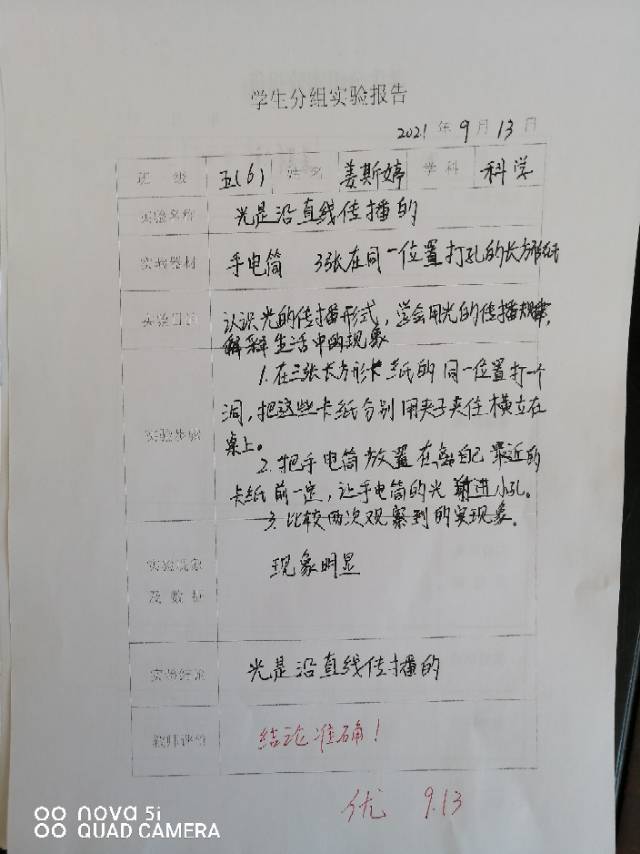 学生分组实验报告
2021 年 9 月 13 日
班 级 五(6) 姓名 姜斯婷 学 科 科学
实验名称 光是沿直线传播的
实验器材 手电筒 3张在同一位置打孔的长方形卡纸
实验目的 认识光的传播形式，学会用光的传播规律，
解释生活中的现象
1.在三张长方形卡纸的同一位置打一个
洞，把这些卡纸分别用夹子夹住横立在
实验步骤 桌上。
2.把手电筒放置在离自己最近的
卡纸前一定，让手电筒的光射进小孔。
3.比较两次观察到的实现象。
实验现象 现象明显
及数据
实验结论 光是沿直线传播的
教师评价 结论准确！
优 9.13
nova 5i
QUAD CAMERA